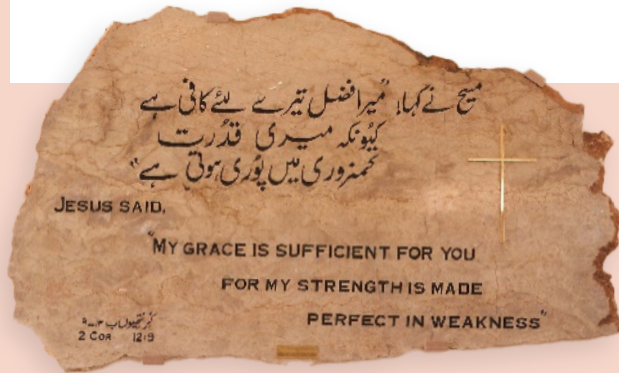 مسیح نے کہا، "میرا فضل تیرے لئے کافی ہے
کیونکہ میری قدرت
کمزوری میں پوری ہوتی ہے"
JESUS SAID,
"MY GRACE IS SUFFICIENT FOR YOU
FOR MY STRENGTH IS MADE
PERFECT IN WEAKNESS"
2 COR 12:9